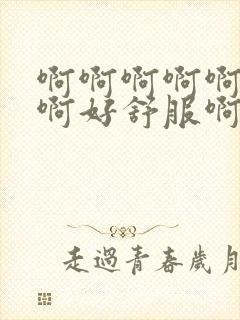 啊啊啊啊啊
啊好舒服啊
走過青春歲月